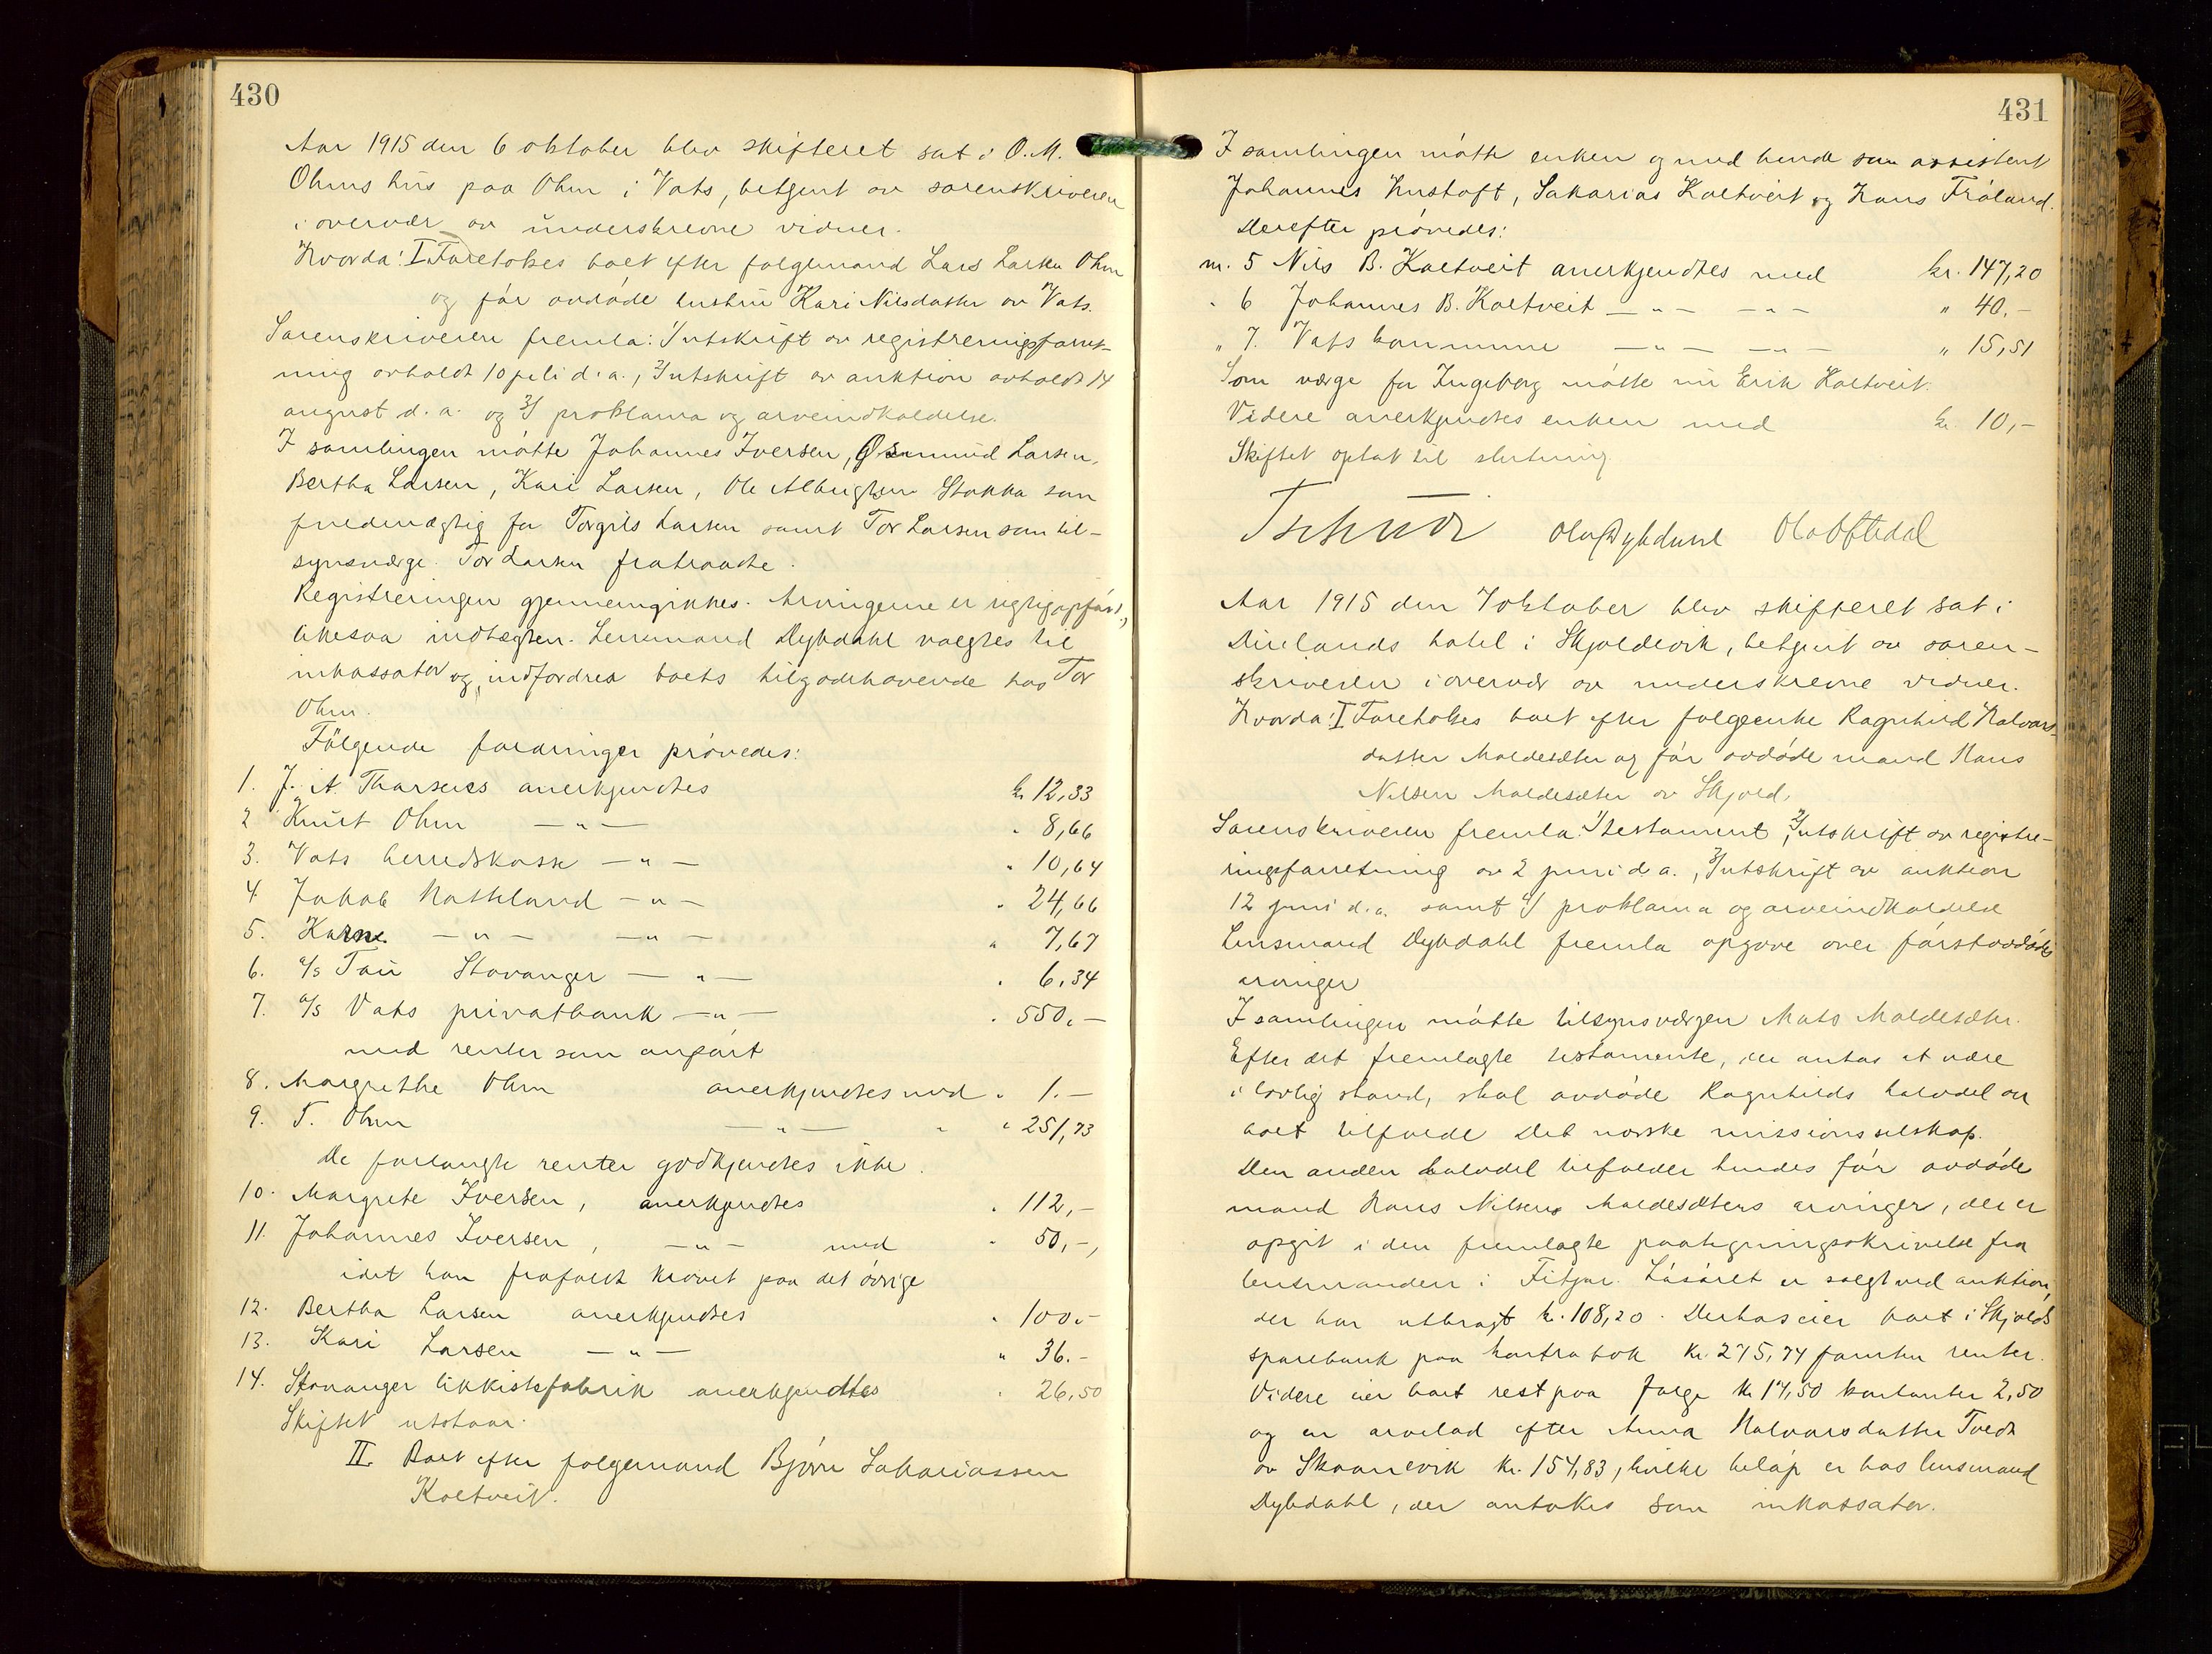 430
Aar 1915 den 6 oktober blev skifteret sat i O. M.
Ohms hus paa Ohm i Vats, betjent av sorenskriveren
i overvær av underskrevne vidner.
Hvorda: I Foretokes boet efter folgemand Lars Larsen Ohm
og før avdøde hustru Kari Nilsdatter av Vats.
Sorenskriveren fremla: 1/ utskrift av registreringsforret-
ning avholdt 10 juli d. a., 2/ utskrift av auktion avholdt 14
august d. a. og 3/ proklama og arveindkaldelse.
I samlingen møtte Johannes Iversen, Osmund Larsen,
Bertha Larsen, Kari Larsen, Ole Albrigtsen Stakka som
fuldmægtig for Torgils Larsen samt Tor Larsen som til-
synsværge. Tor Larsen fratraadte.
Registreringen gjennemgikkes. Arvingerne er rigtig opført,
likesaa indtægten. Lensmand Dybdahl valgtes til
inkassator og indfordres boets tilgodehavende hos Tor
Ohm.
Følgende fordringer prøvedes:
1. J. A. Tharsens anerkjendtes kr 12,33
2 Knut Ohm — " — " 8,66
3. Vats herredskasse — " — " 10,64
4. Jakob Natteland — " — " 24,66
5. Karne — " — — " — " 7,67
6. A/S Tou Stavanger — " — " 6,34
7. A/S Vats privatbank — " — " 550,—
med renter som anført
8. Margrethe Ohm anerkjendtes med " 1.—
9. T. Ohm — " — " " 251,73
De forlangte renter godkjendtes ikke.
10. Margrete Iversen, anerkjendtes " 112,—
11. Johannes Iversen, — " — med " 50,—,
idet han frafaldt kravet paa det øvrige
12. Bertha Larsen anerkjendtes " 100.-
13. Kari Larsen — " — " 36.-
14. Stavanger likkistefabrik anerkjendtes " 26,50
Skiftet utstaar.
II. Boet efter folgemand Bjørn Sakariassen
Koltveit.
431
I samlingen møtte enken og med hende som assistent
Johannes Hustoft, Sakarias Koltveit og Hans Frøland.
Derefter prøvedes:
nr. 5 Nils B. Koltveit anerkjendtes med kr. 147,20
" 6 Johannes B. Koltveit — " — — " — " 40.-
" 7. Vats kommune — " — — " — " 15,51
Som værge for Ingeborg møtte nu Erik Koltveit.
Videre anerkjendtes enken med kr 10,-
Skiftet optat til slutning
Tschudi Ola Dybdahl Ola Oftedal
Aar 1915 den 7 oktober blev skifteret sat i
Duelands hotel i Skjoldevik, betjent av soren-
skriveren i overvær av underskrevne vidner.
Hvorda: I Foretokes boet efter folgeenke Ragnhild Halvors-
datter Moldesæter og før avdøde mand Hans
Nilsen Moldesæter av Skjold.
Sorenskriveren fremla: 1/ testament, 2/ utskrift av registre-
ringsforretning av 2 juni d. a., 3/ utskrift av auktion
12 juni d. a. samt 4/ proklama og arveindkaldelse
Lensmand Dybdahl fremla opgave over førstavdødes
arvinger
I samlingen møtte tilsynsværgen Mats Moldesæter.
Efter det fremlagte testamente, der antas at være
i lovlig stand, skal avdøde Ragnhilds halvdel av
boet tilfalde Det norske missionsselskap.
Den anden halvdel tilfalder hendes før avdøde
mand Hans Nilsens Moldesæters arvinger, der er
opgit i den fremlagte paategningsskrivelse fra
lensmanden i Fitjar. Løsøret er solgt ved auktion,
der har utbragt kr. 108,20. Derhos eier boet i Skjolds
sparebank paa kontrabok kr. 275,74 foruten renter.
Videre eier boet rest paa folge kr 17,50 kontanter 2,50
og en arvelod efter Anna Halvorsdatter Tvedt
av Skaanevik kr. 154,83, hvilke beløp er hos lensmand
Dybdahl, der antokes som inkassator.